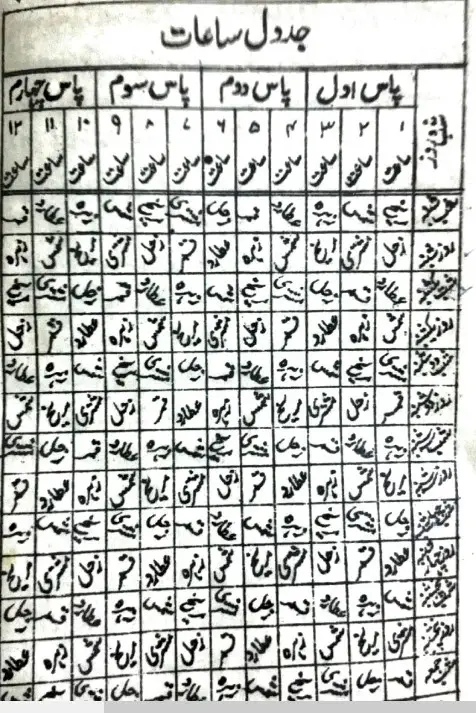 جدول ساعات
پاس اول پاس دوم پاس سوم پاس چہارم
۱ ۲ ۳ ۴ ۵ ۶ ۷ ۸ ۹ ۱۰ ۱۱ ۱۲
ساعت ساعت ساعت ساعت ساعت ساعت ساعت ساعت ساعت ساعت ساعت ساعت
شب شنبہ مریخ شمس زہرہ عطارد قمر زحل مشتری مریخ شمس زہرہ عطارد قمر
روز شنبہ زحل مشتری مریخ شمس زہرہ عطارد قمر زحل مشتری مریخ شمس زہرہ
شب یکشنبہ عطارد قمر زحل مشتری مریخ شمس زہرہ عطارد قمر زحل مشتری مریخ
روز یکشنبہ شمس زہرہ عطارد قمر زحل مشتری مریخ شمس زہرہ عطارد قمر زحل
شب دوشنبہ مشتری مریخ شمس زہرہ عطارد قمر زحل مشتری مریخ شمس زہرہ عطارد
روز دوشنبہ قمر زحل مشتری مریخ شمس زہرہ عطارد قمر زحل مشتری مریخ شمس
شب سہ شنبہ زہرہ عطارد قمر زحل مشتری مریخ شمس زہرہ عطارد قمر زحل مشتری
روز سہ شنبہ مریخ شمس زہرہ عطارد قمر زحل مشتری مریخ شمس زہرہ عطارد قمر
شب چہارشنبہ زحل مشتری مریخ شمس زہرہ عطارد قمر زحل مشتری مریخ شمس زہرہ
روز چہارشنبہ عطارد قمر زحل مشتری مریخ شمس زہرہ عطارد قمر زحل مشتری مریخ
شب پنجشنبہ شمس زہرہ عطارد قمر زحل مشتری مریخ شمس زہرہ عطارد قمر زحل
روز پنجشنبہ مشتری مریخ شمس زہرہ عطارد قمر زحل مشتری مریخ شمس زہرہ عطارد
شب جمعہ قمر زحل مشتری مریخ شمس زہرہ عطارد قمر زحل مشتری مریخ شمس